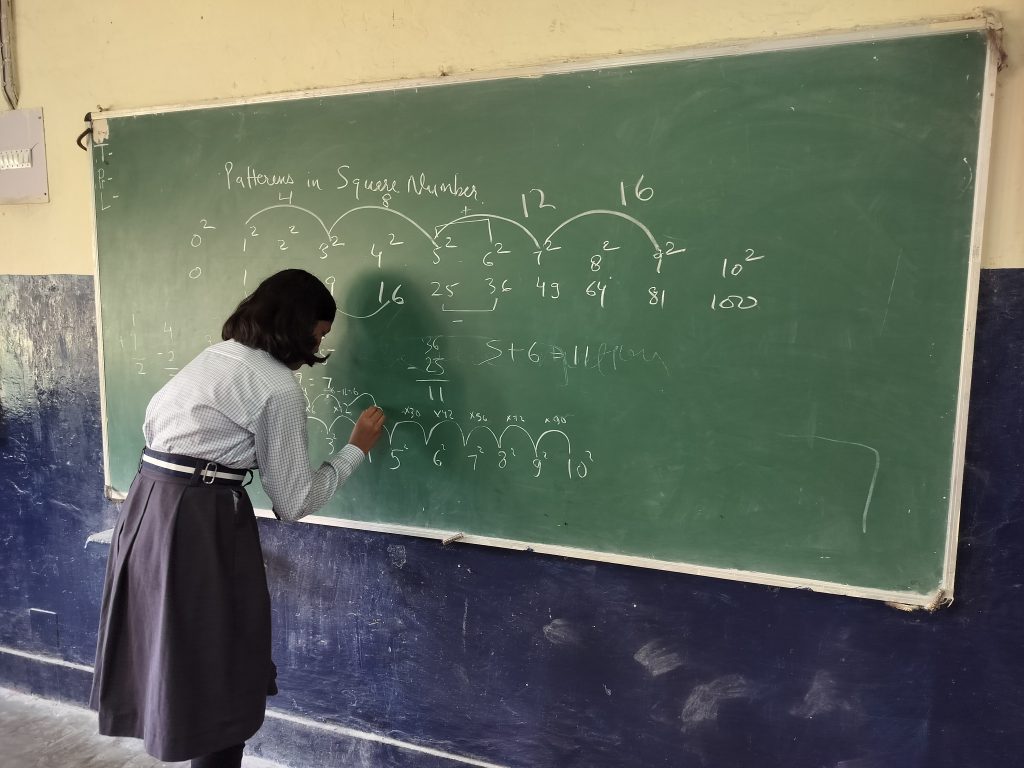 Patterens in Square Number
4 8 + 12 16
0² 1² 2² 3² 4² 5² 6² 7² 8² 9² 10²
0 1 9 16 25 36 49 64 81 100
−
36
- 25
11
5+6 = 11
= 7
×30 ×42 ×56 ×72 ×90
3² 5² 6² 7² 8² 9² 10²